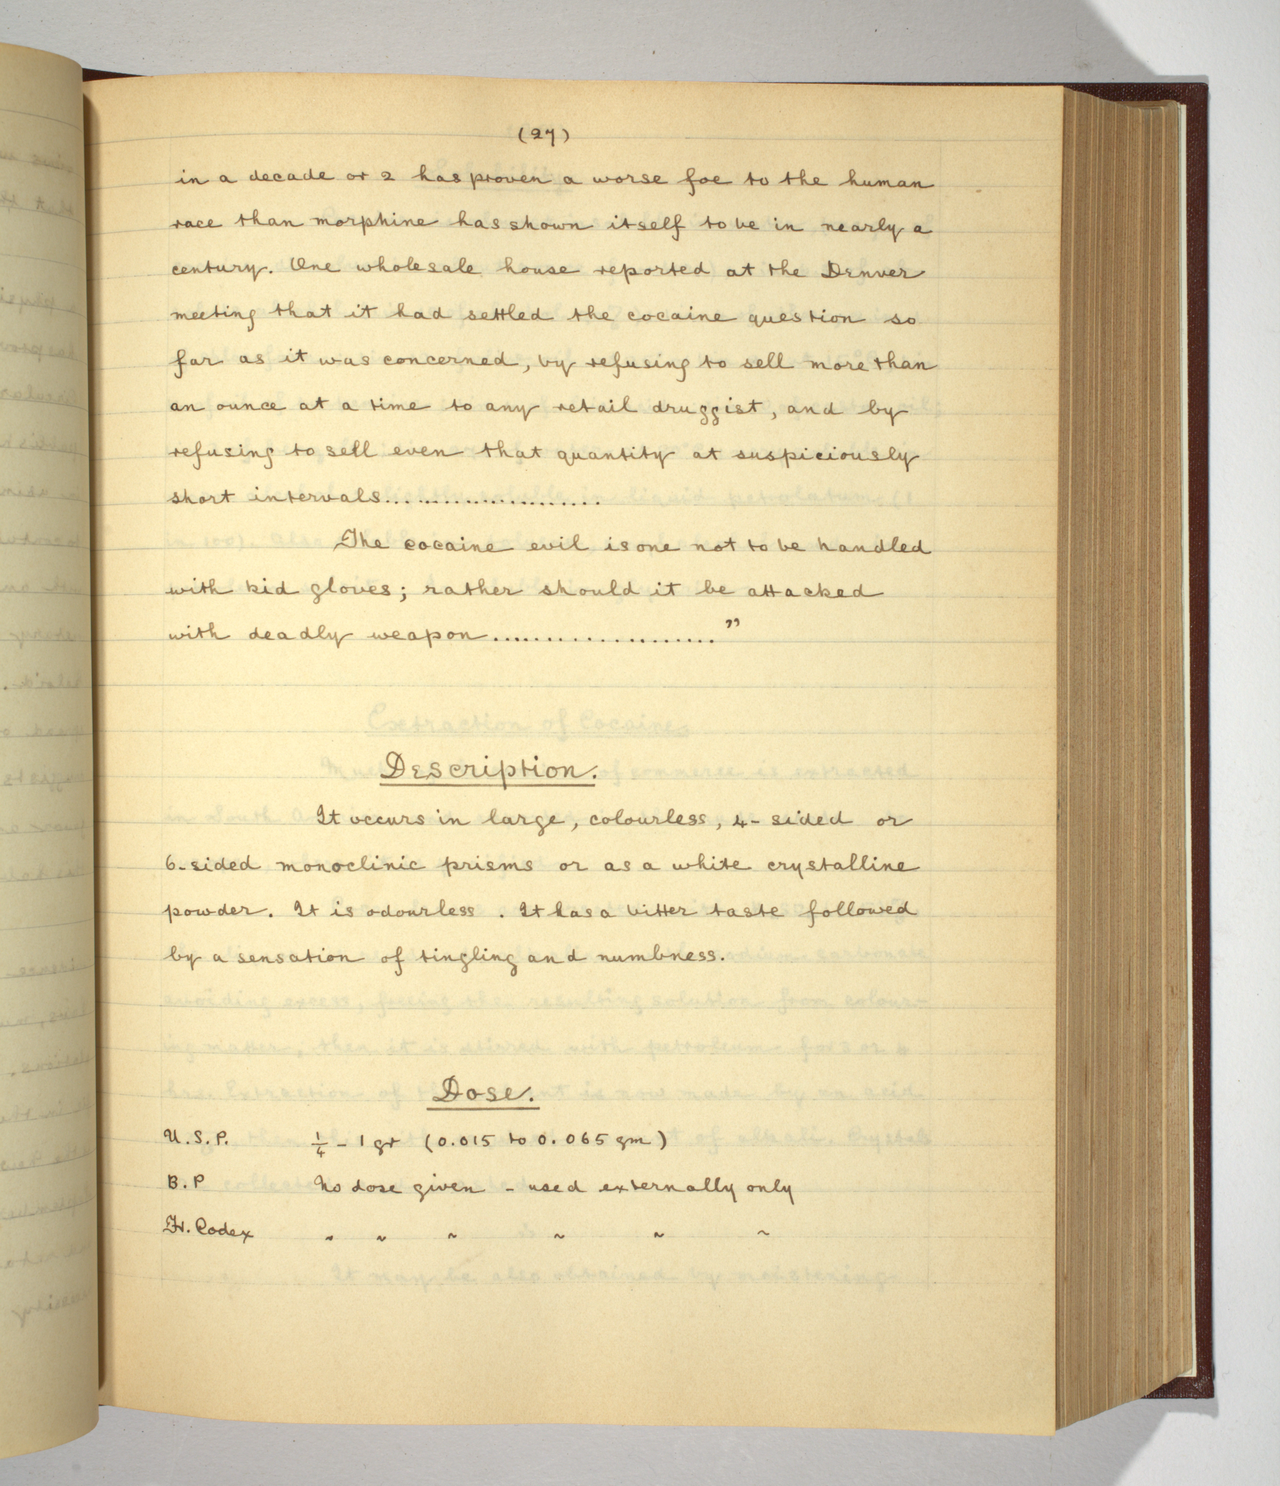 (27)
in a decade or 2 has proven a worse foe to the human
race than morphine has shown itself to be in nearly a
century. One wholesale house reported at the Denver
meeting that it had settled the cocaine question so
far as it was concerned, by refusing to sell more than
an ounce at a time to any retail druggist, and by
refusing to sell even that quantity at suspiciously
short intervals.....................
The cocaine evil is one not to be handled
with kid gloves; rather should it be attacked
with deadly weapon....................."
Description.
It occurs in large, colourless, 4-sided or
6-sided monoclinic prisms or as a white crystalline
powder. It is odourless. It has a bitter taste followed
by a sensation of tingling and numbness.
Dose.
U.S.P. 1/4 - 1 gr (0.015 to 0.065 gm)
B.P No dose given - used externally only
Fr. Codex " " " " " "